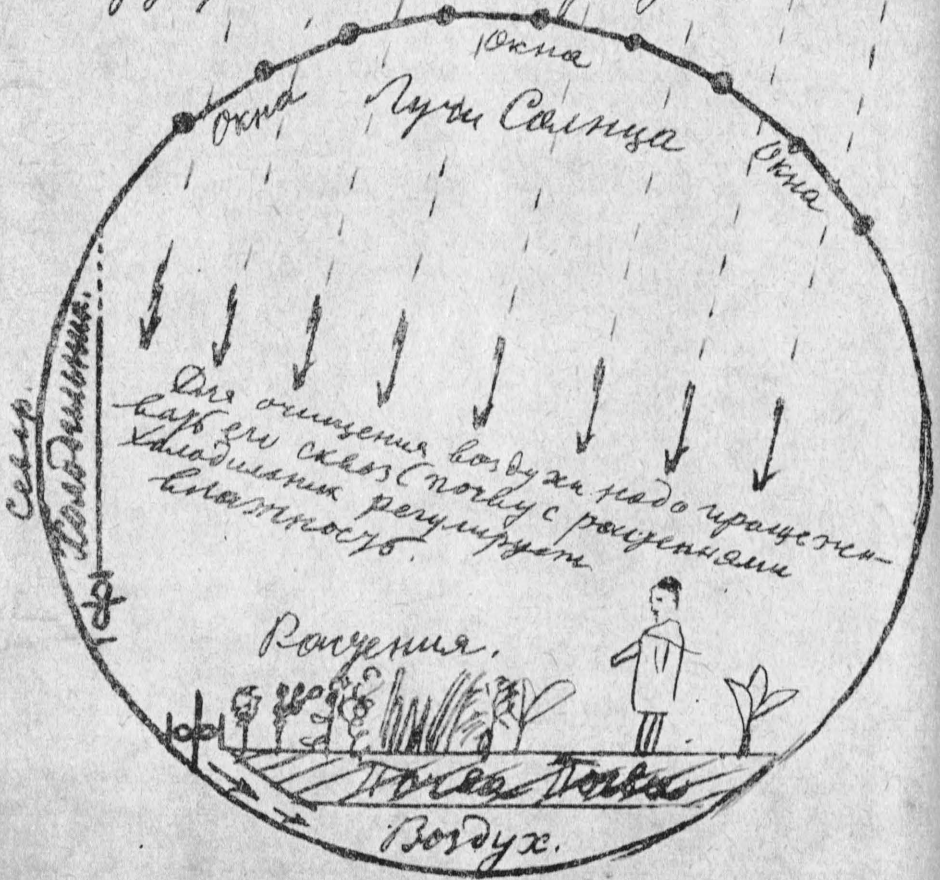 Окна
Окна
Лучи Солнца
Окна
Север.
Холодильник.
Для очищения воздуха надо
вать его сквоз (почву с ращениями
Холодильник регулирует
влажность.
Ращения.
Почва Почва
Воздух.